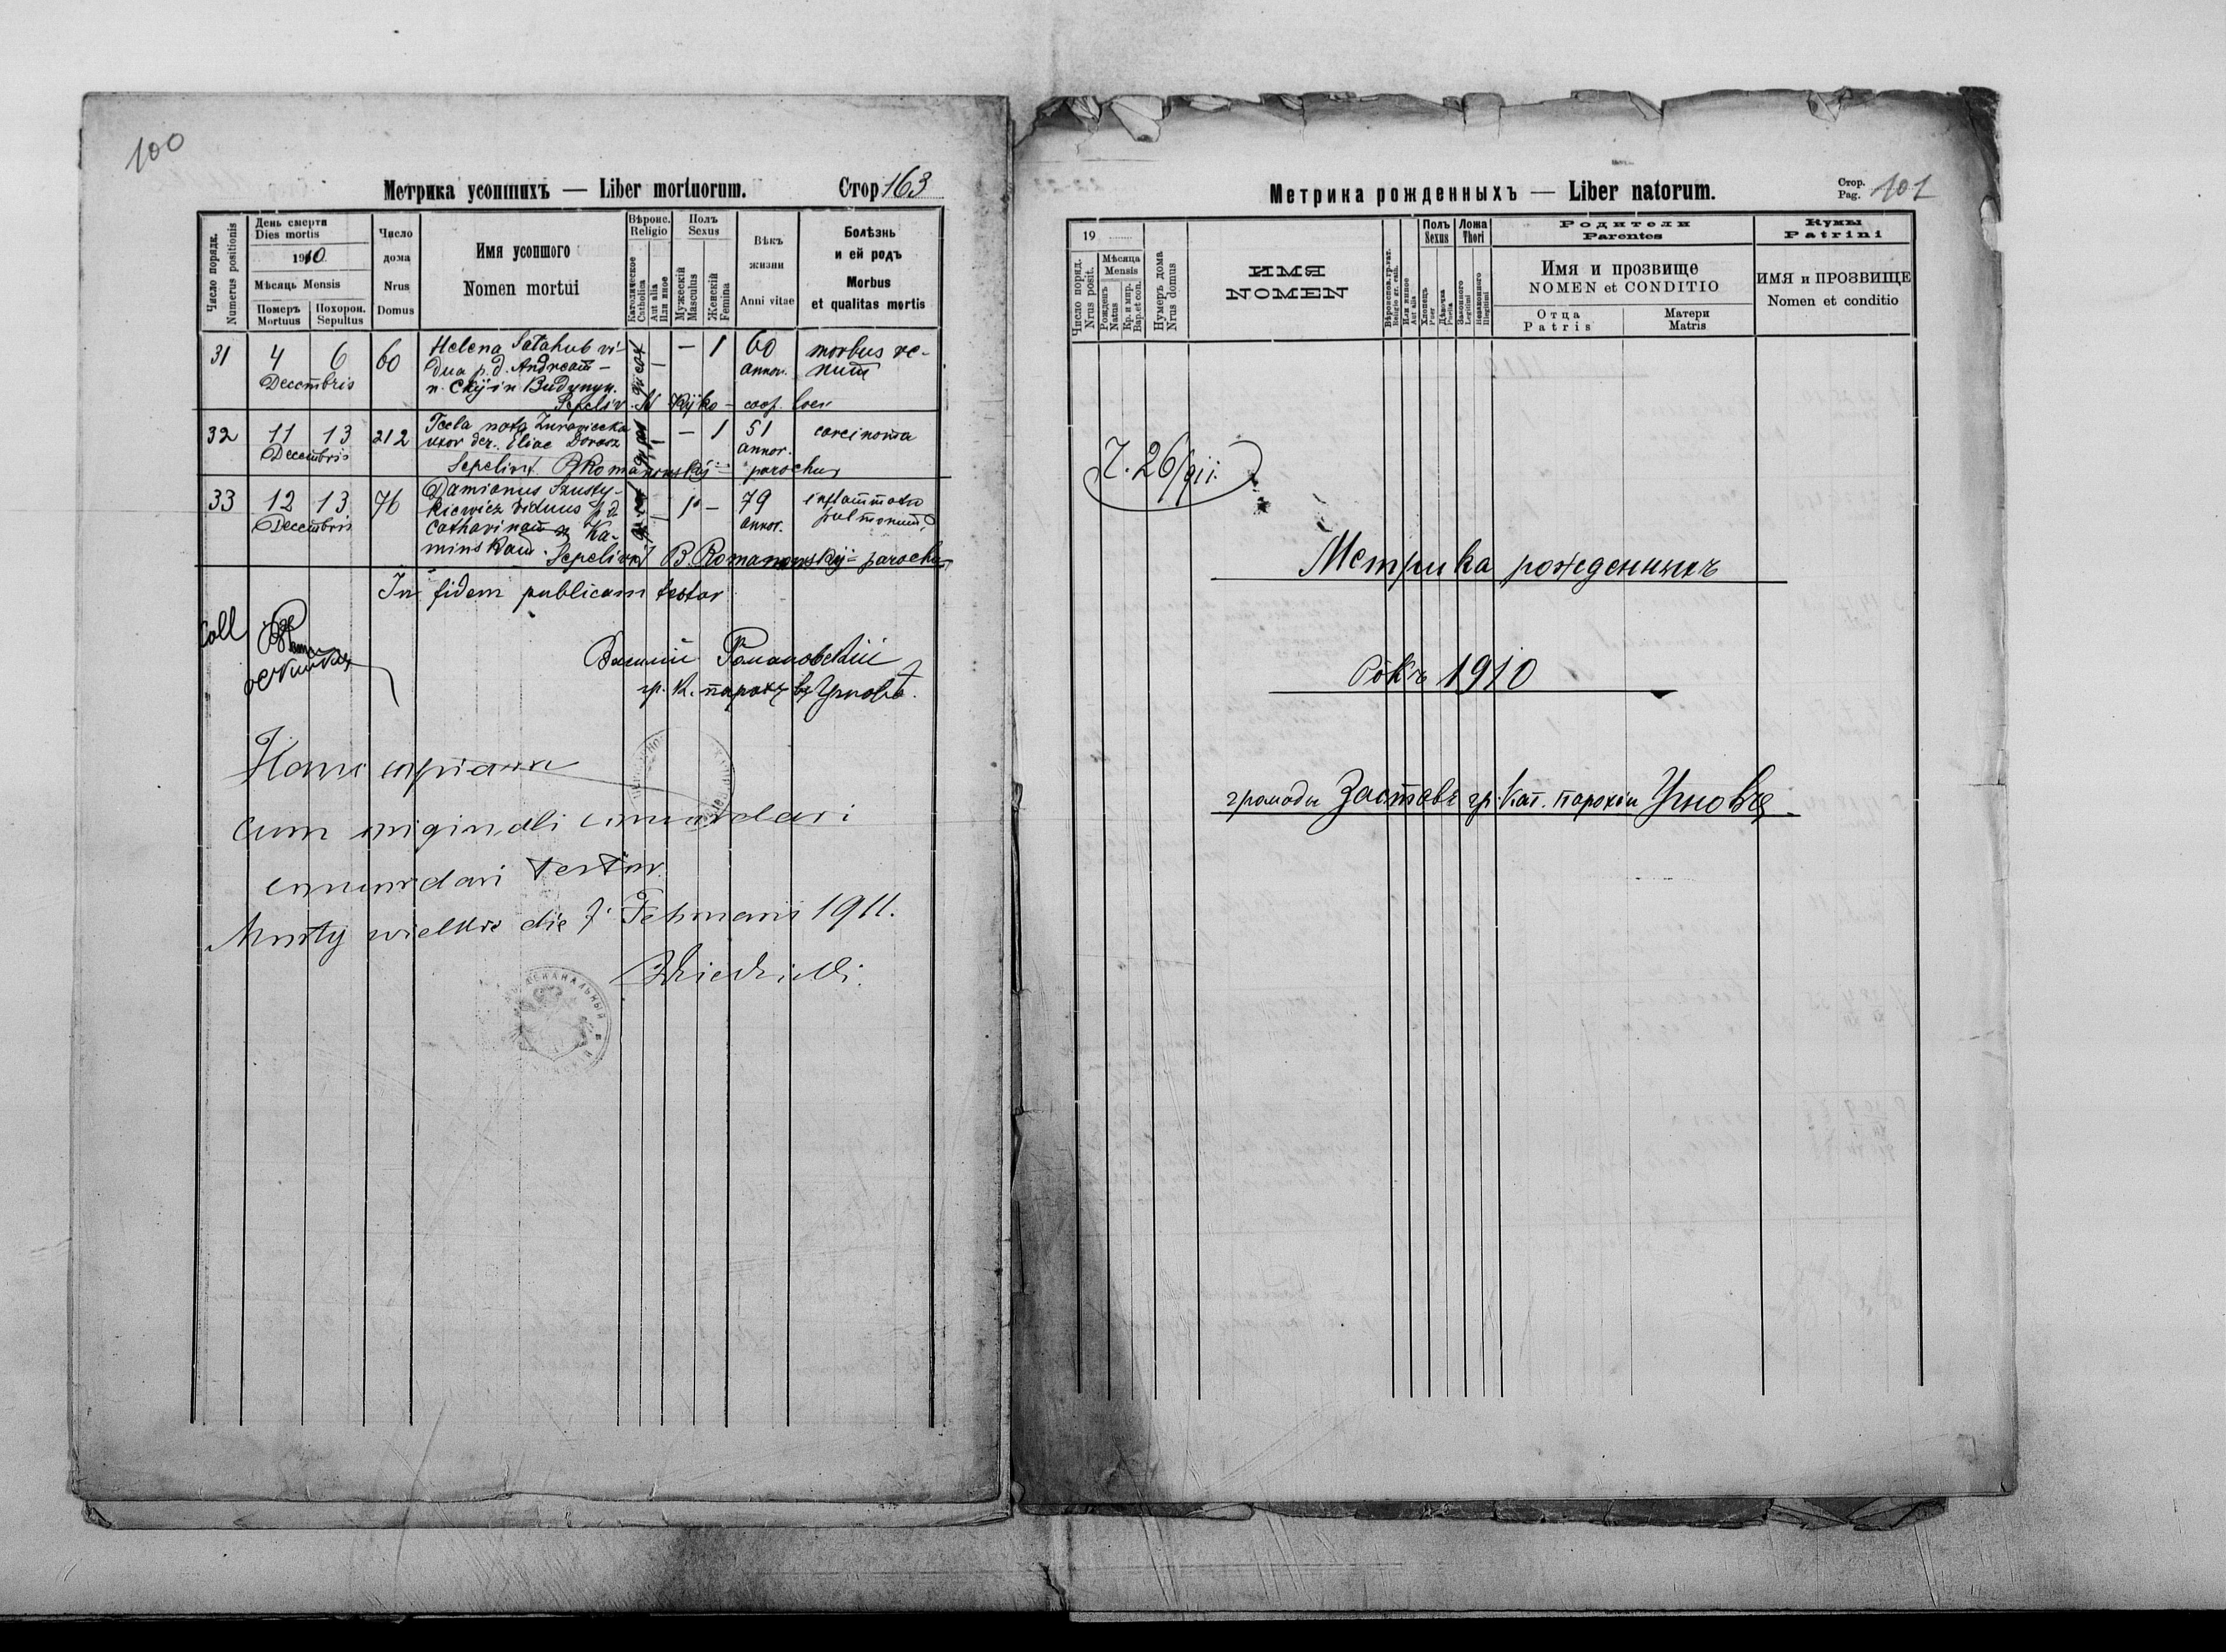 100
Метрика усопшихъ — Liber mortuorum. Стор 163
Число порядк. Numerus positionis
День смерти
Dies mortis
1910
Мѣсяць Mensis
Померъ Mortuus
Похорон. Sepultus
Число дома
Nrus Domus
Имя усопшого
Nomen mortui
Вѣроис. Religio
Католическое Catholica
Или иное Aut alia
Полъ Sexus
Мужескій Masculus
Женскій Femina
Вѣкъ жизни
Anni vitae
Болѣзнь и ей родъ
Morbus et qualitas mortis
31 4 6 60 Helena Satahub vi- — 1 60 morbus re-
Decembris dua p. d. Andream — annor. num
in Budynyn.
Sepeliv. Kÿko — coop. loci
32 11 13 212 Tecla nata Zurawiecka — 1 51 carcinoma
Decembris uxor der. Eliae Dorosz annor.
Sepelivit B Romanowskij — parochus
33 12 13 76 Damianus Szusty- 1 — 79 inflammatio
Decembris kiewicz viduus p. d. annor. pulmonum
Catharinam Ka-
minskam. Sepelivit B. Romanowskij — parochus
In fidem publicam testor
Coll
Василій Романовскій
гр. к. парохъ въ Угновѣ.
Hanc copiam
cum originali concordari
concordari testor
Mosty wielkie die 7. Februarii 1911.
Метрика рожденныхъ — Liber natorum.
Стор. Pag. 101
19
Число поряд. Nrus posit.
Мѣсяца Mensis
Рожденъ Natus
Кр. и мир. Bap. et con.
Нумеръ дома Nrus domus
ИМЯ
NOMEN
Вѣроиспов. гр.-кат. Religio gr. cath.
Или иное Aut alia
Полъ Sexus
Хлопець Puer
Дѣвочка Puella
Ложа Thori
Законного Legitimi
Незаконного Illegitimi
Родители
Parentes
Имя и прозвище
NOMEN et CONDITIO
Отца Patris
Матери Matris
Кумы
Patrini
ИМЯ и ПРОЗВИЩЕ
Nomen et conditio
7. 26/911.
Метрика рожденныхъ
Рôкъ 1910
громады Заставье гр. Кат. парохіи Угновъ